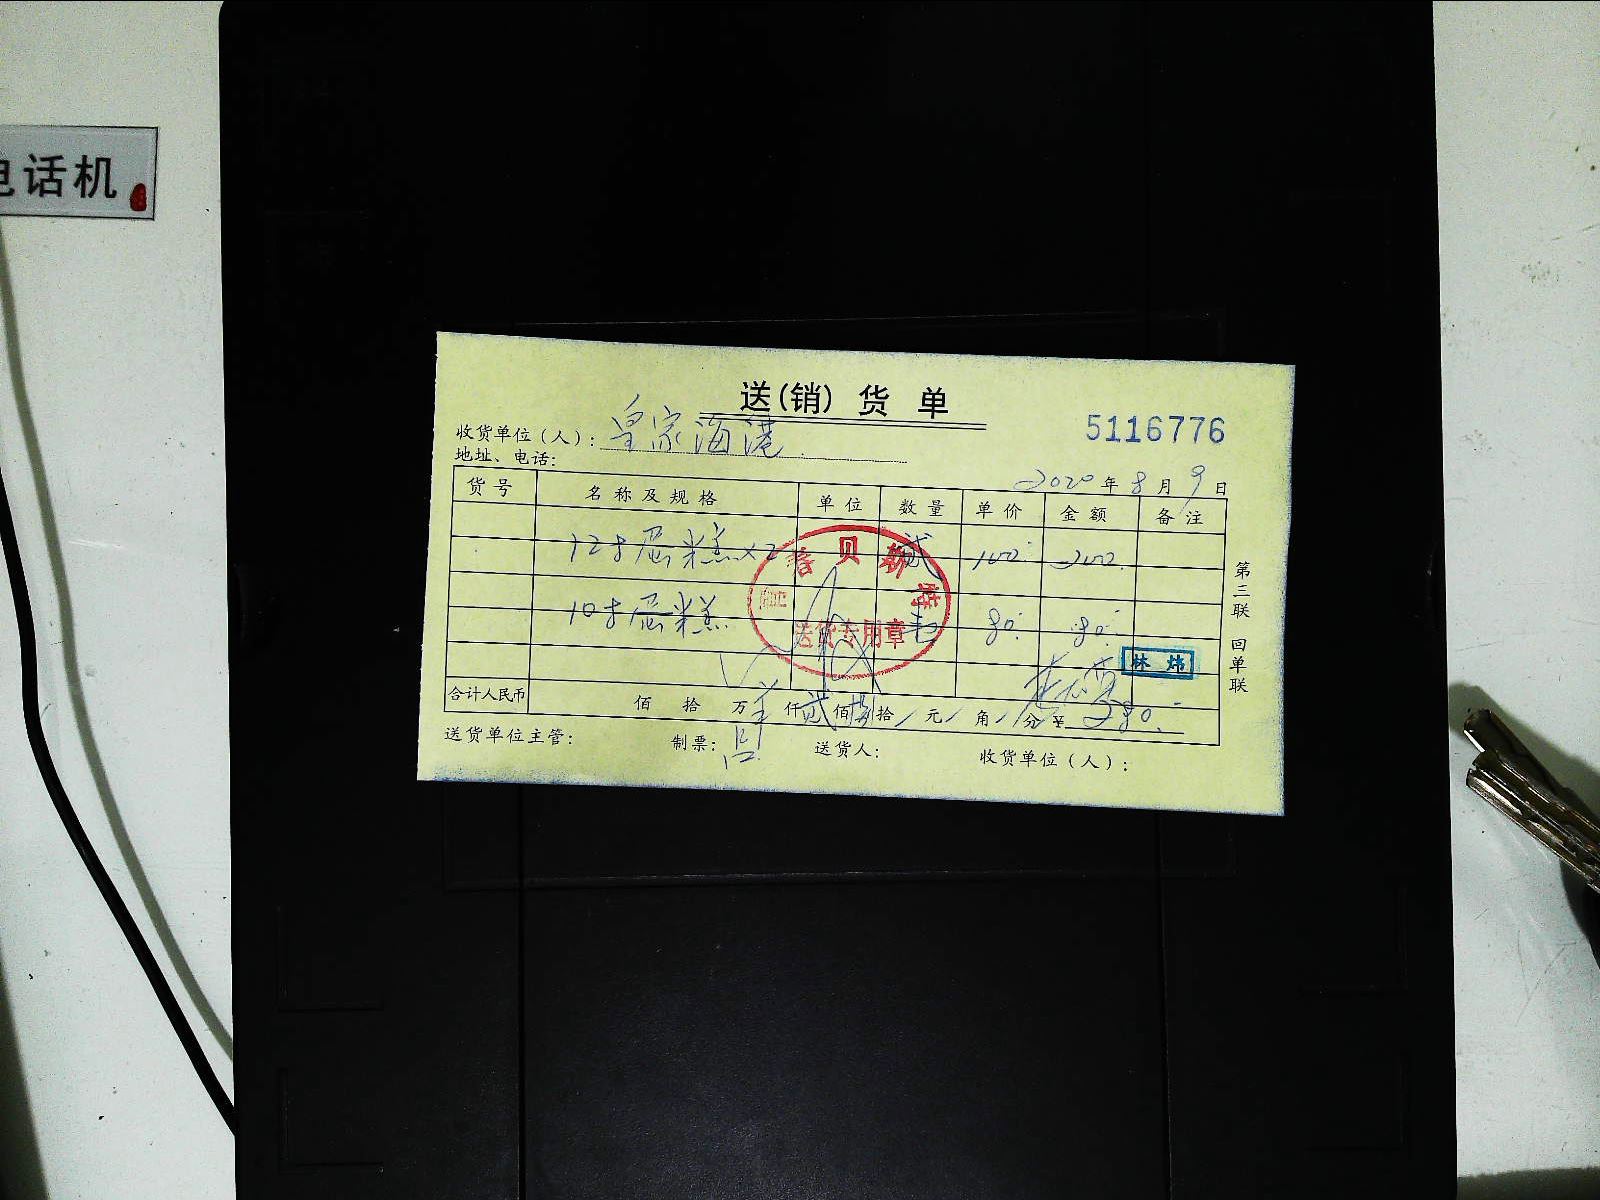 电话机
送(销)货单
5116776
收货单位（人）：皇家海港
地址、电话：
2020年8月9日
货号 名称及规格 单位 数量 单价 金额 备注
12寸蛋糕×2 贰 100 200
10寸蛋糕 80 80
贝斯特
送货专用章
林炜
合计人民币 佰 拾 万 仟贰佰捌拾 元 角 分 ¥280
送货单位主管： 制票： 送货人： 收货单位（人）：
第三联 回单联